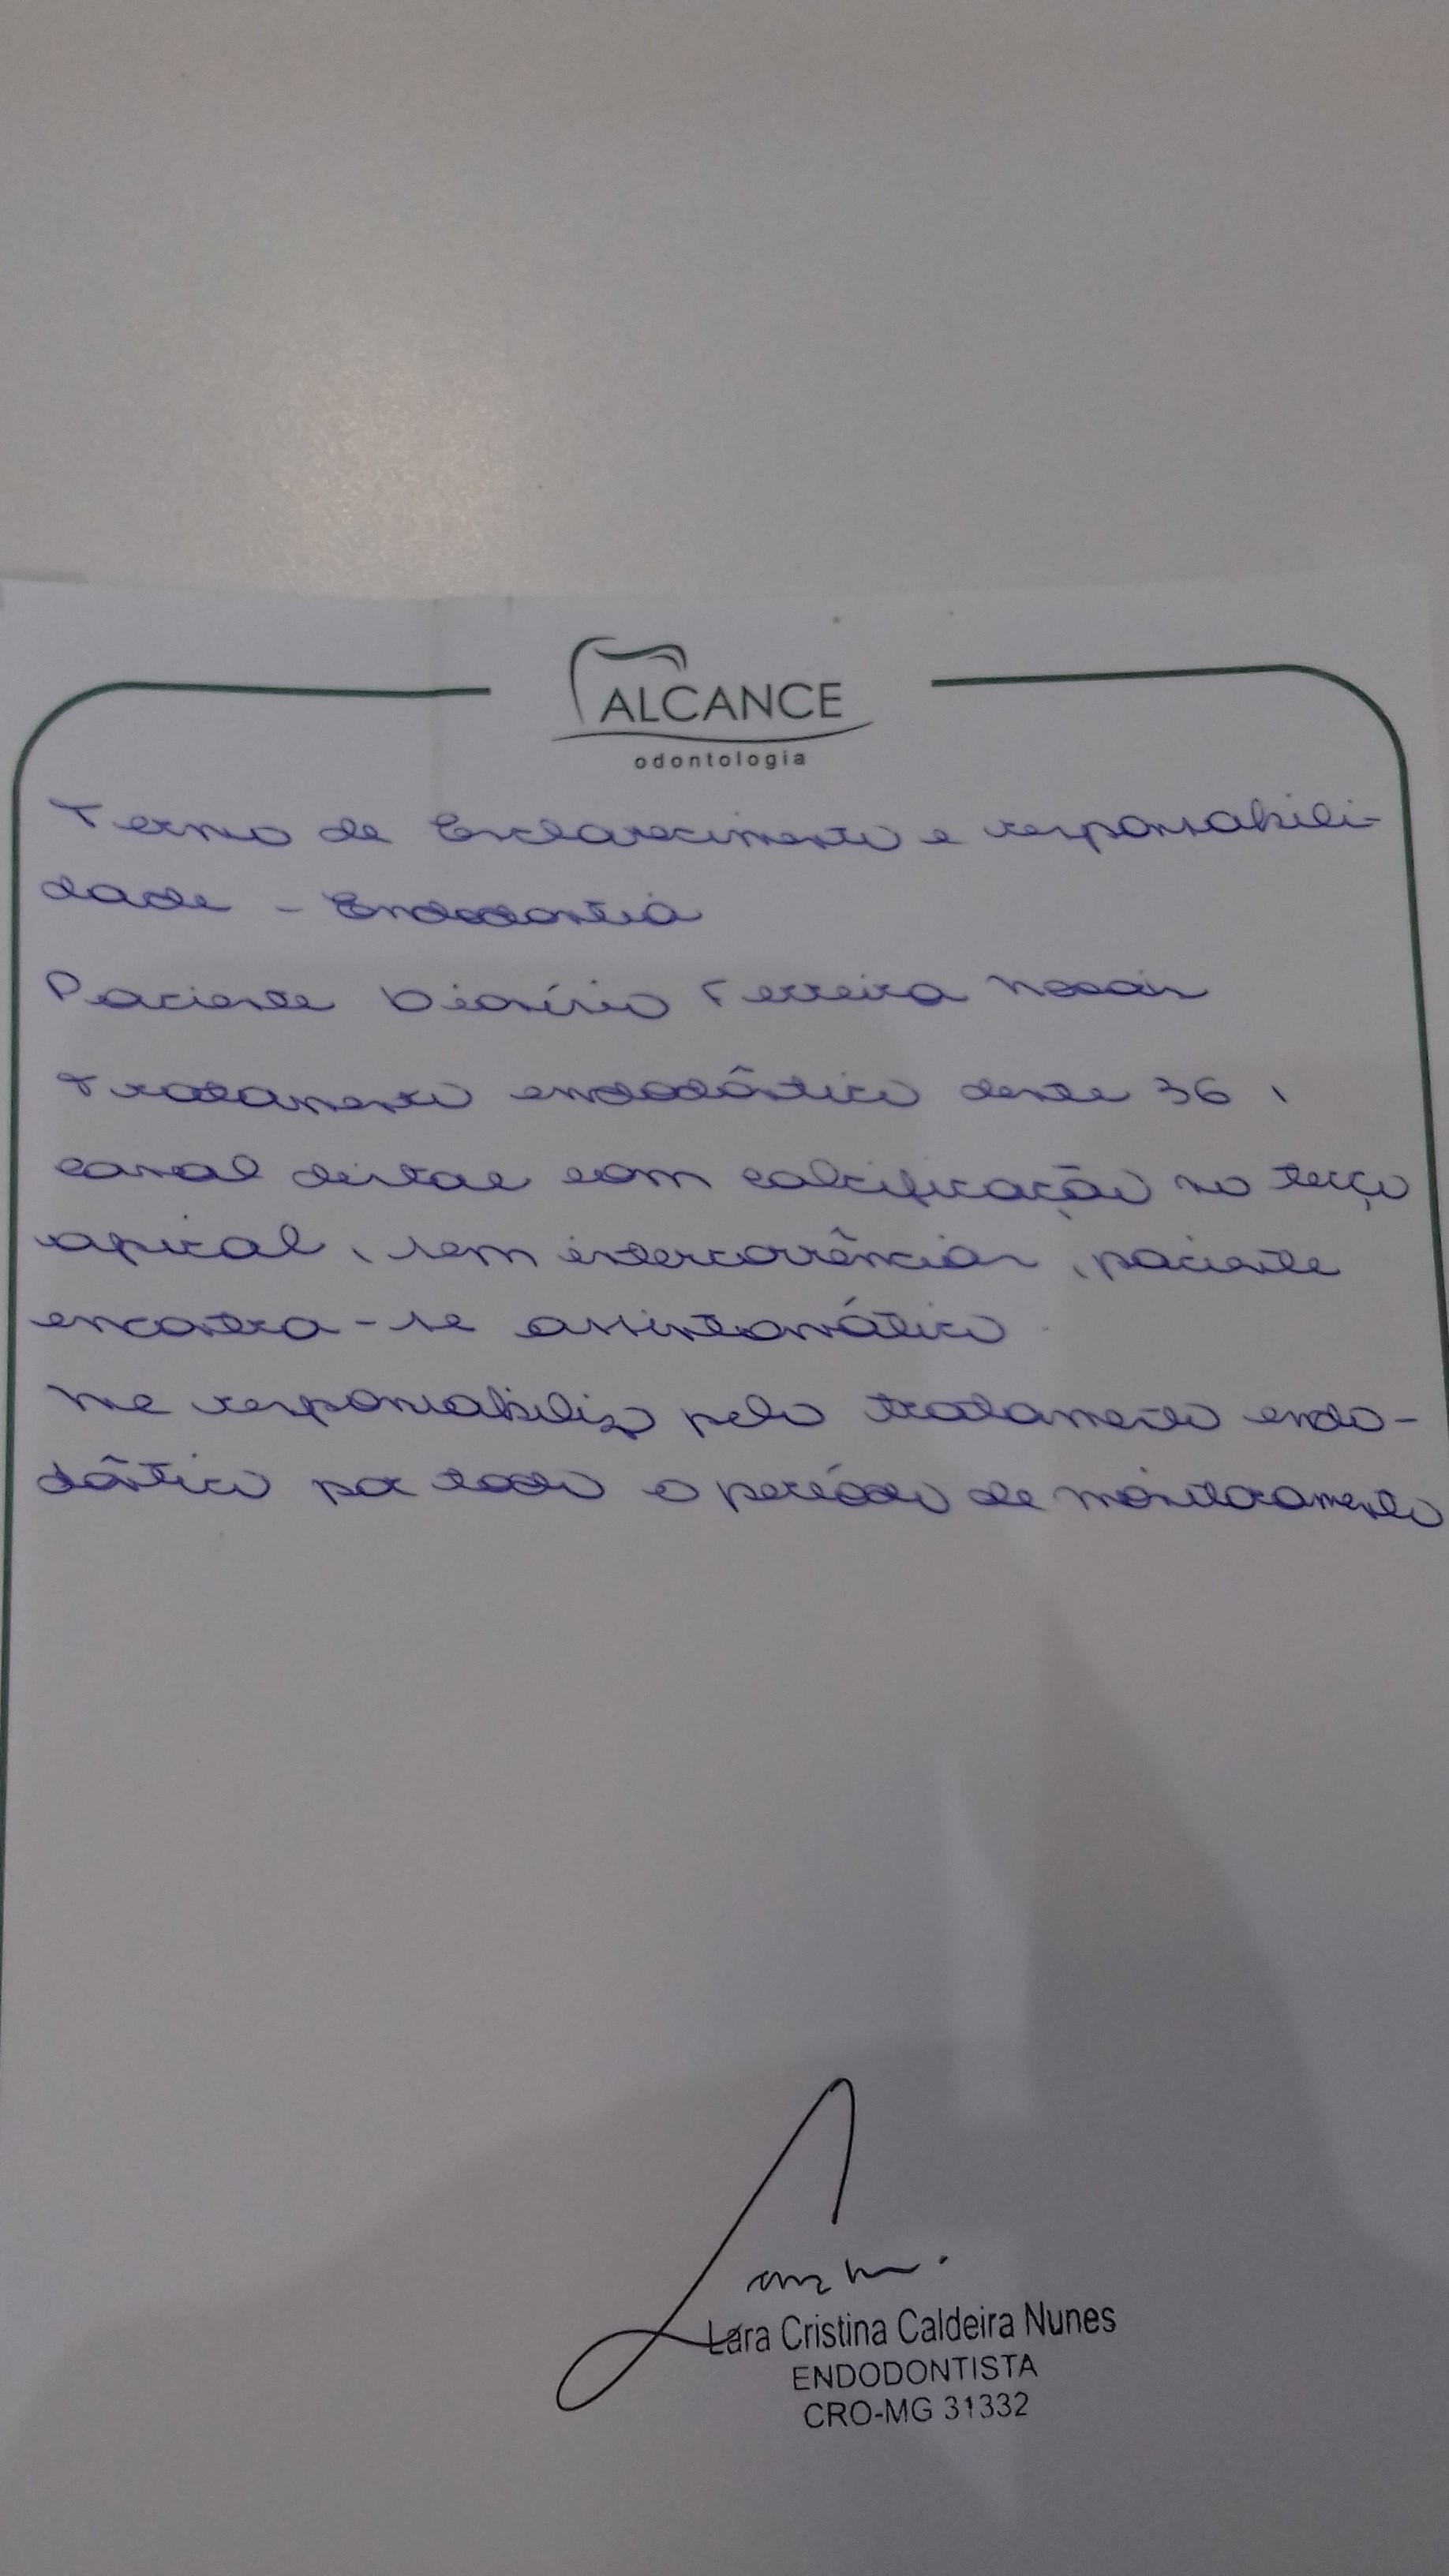 ALCANCE
odontologia
Termo de Esclarecimento e responsabili-
dade - Endodontia
Paciente Dionírio Ferreira
Tratamento endodôntico dente 36,
canal distal com calcificação no terço
apical, sem intercorrências, paciente
encontra-se assintomático.
Me responsabilizo pelo tratamento endo-
dôntico por todo o período de monitoramento
Lara Cristina Caldeira Nunes
ENDODONTISTA
CRO-MG 31332